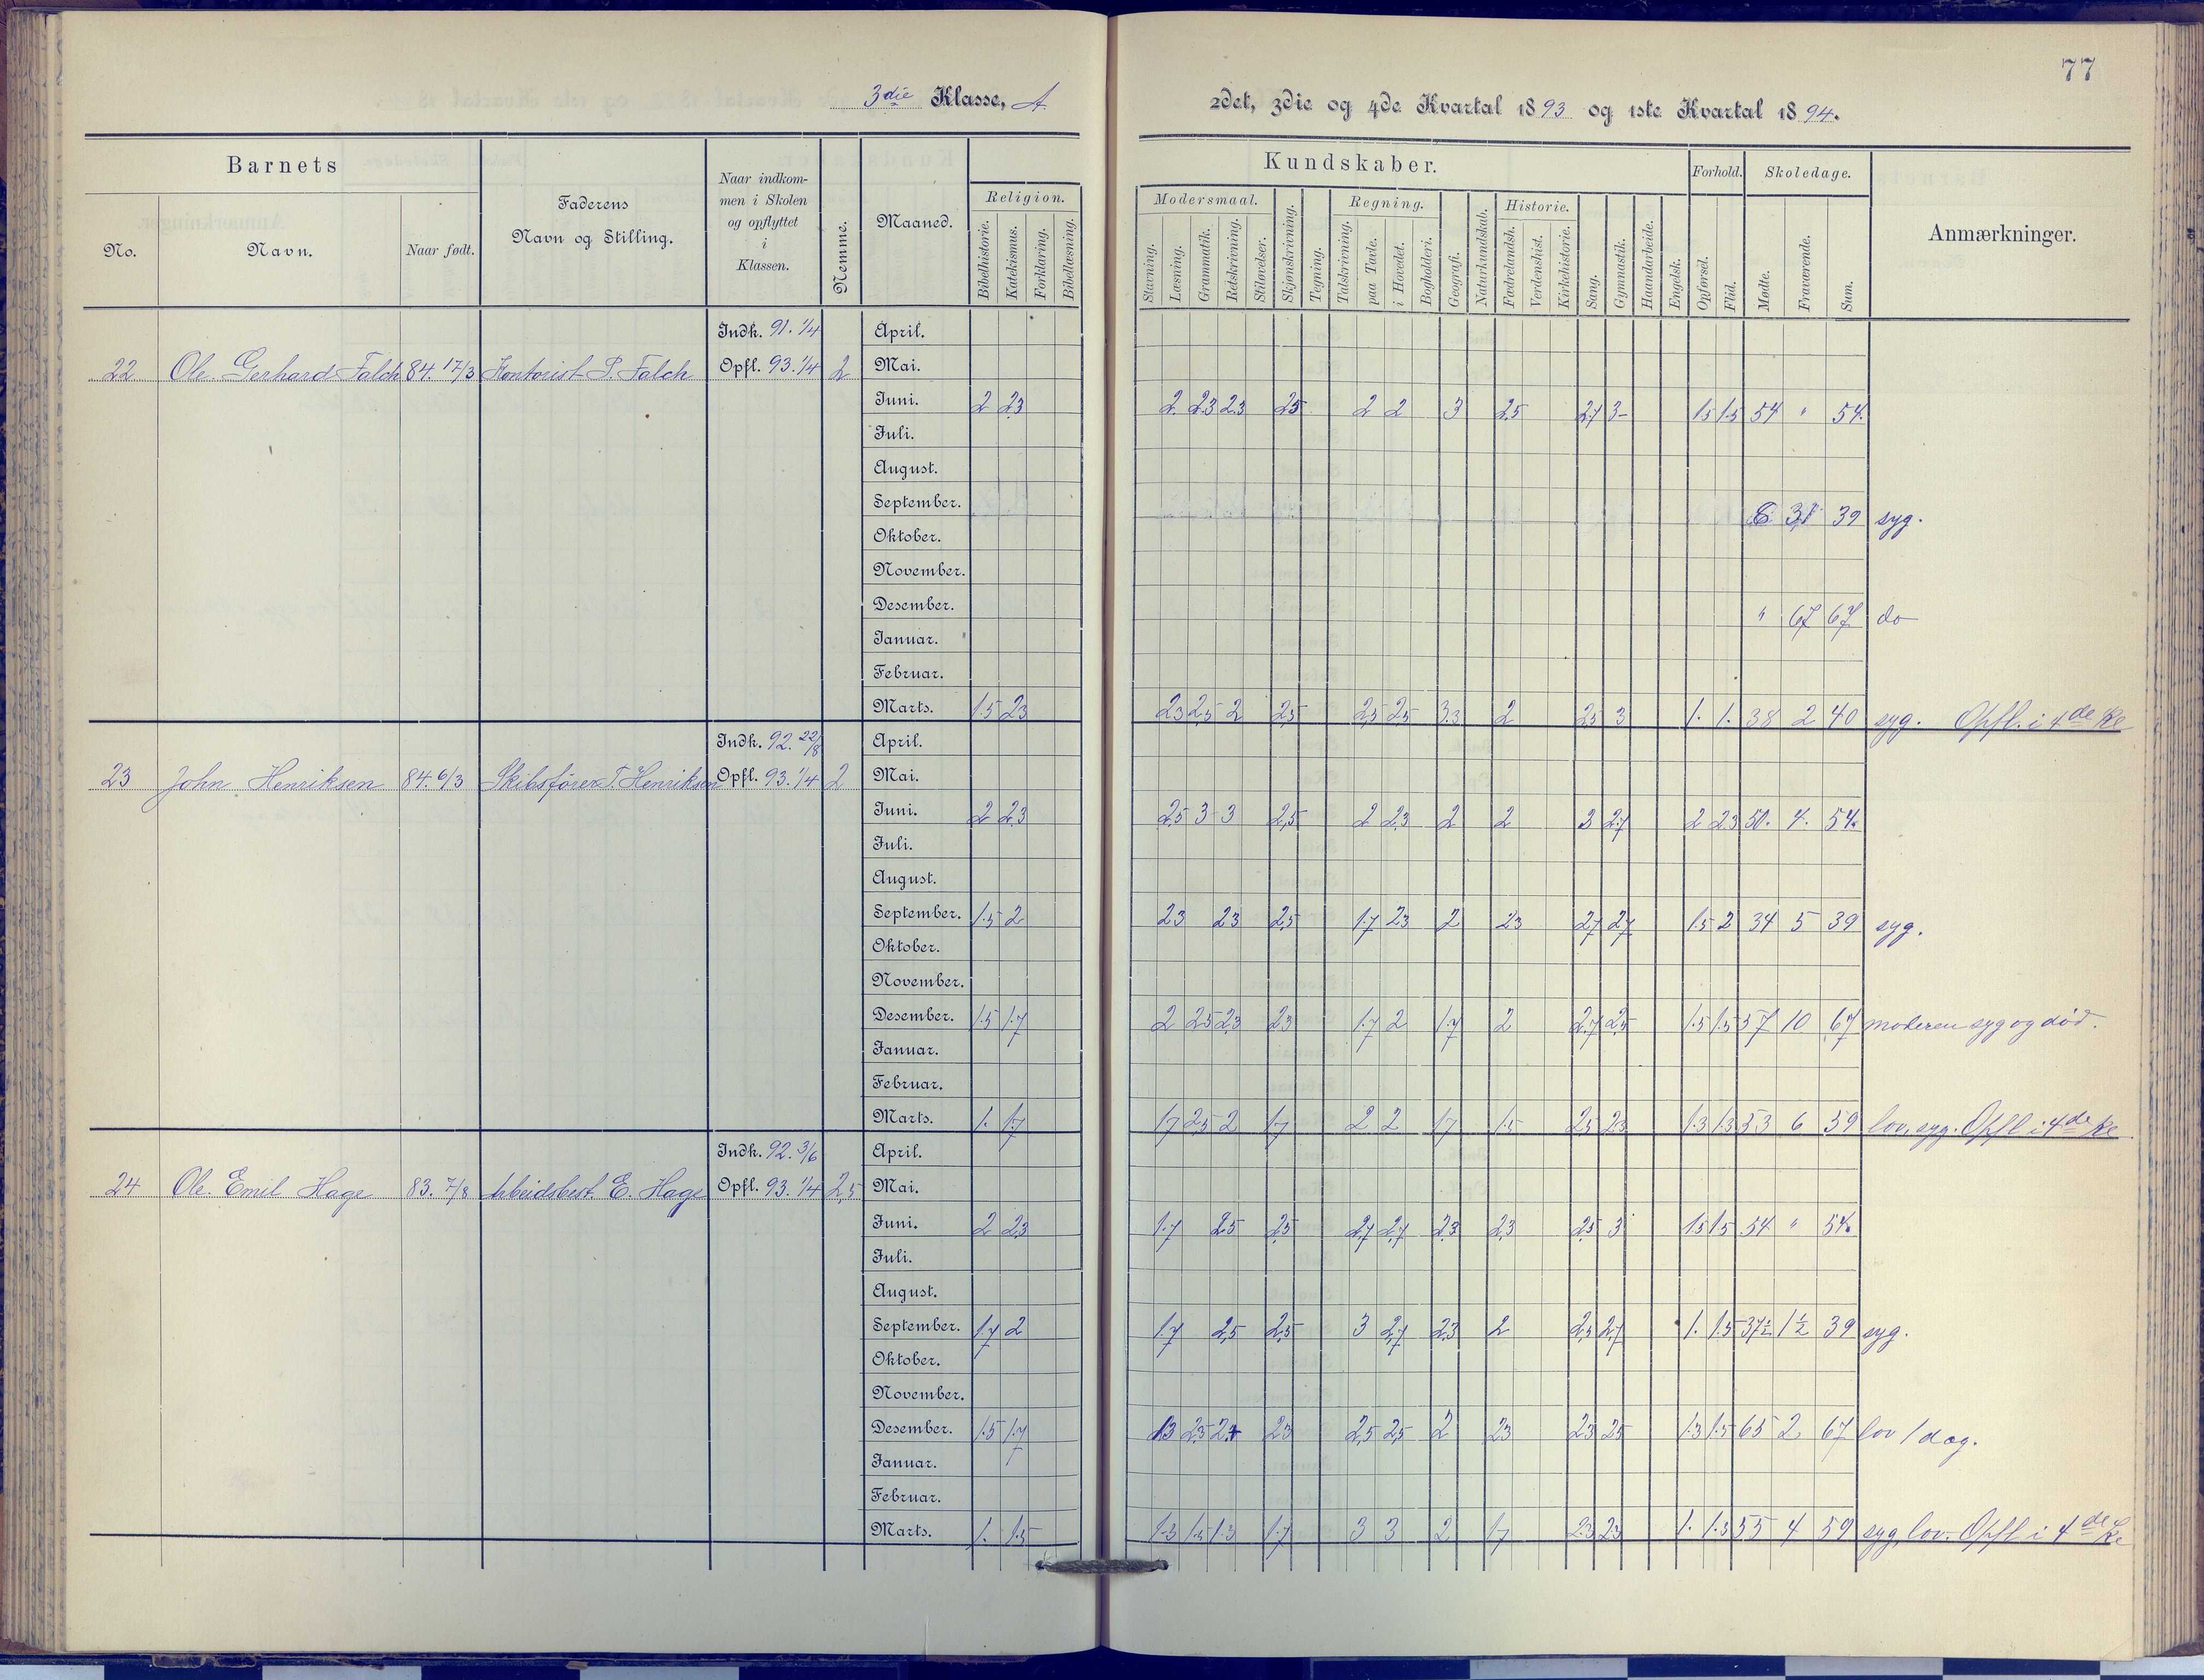 77
3die Klasse, A
2det, 3die og 4de Kvartal 1893 og 1ste Kvartal 1894.
Barnets
Faderens
Navn og Stilling.
Naar indkom-
men i Skolen
og opflyttet
i
Klassen.
Nemme.
Maaned.
Kundskaber.
Forhold.
Skoledage.
Anmærkninger.
No.
Navn.
Naar født.
Religion.
Modersmaal.
Regning.
Historie.
Bibelhistorie. Katekismus. Forklaring. Bibellæsning.
Stavning. Læsning. Grammatik. Retskrivning. Stiløvelser. Skjønskrivning. Tegning. Talskrivning. paa Tavle. i Hovedet. Bogholderi. Geografi. Naturkundskab. Fædrelandsh. Verdenshist. Kirkehistorie. Sang. Gymnastik. Haandarbeide. Engelsk. Opførsel. Flid. Mødte. Fraværende. Sum.
Indk. 91. 1/4 April.
22 Ole Gerhard Falch 84. 17/3 Kontorist P. Falch Opfl. 93. 1/4 2 Mai.
Juni. 2 2,3 2 2,3 2,3 2,5 2 2 3 2,5 2,7 3- 1.5 1.5 54 " 54.
Juli.
August.
September. 39 syg.
Oktober.
November.
Desember. " 67 67 do
Januar.
Februar.
Marts. 1.5 2,3 2,3 2,5 2 2,5 2,5 2,5 3.3 2 2,5 3 1. 1. 38 2 40 syg. Opfl. i 4de Kl
Indk. 92. 22/8 April.
23 John Henriksen 84. 6/3 Skibsfører T. Henriksen Opfl. 93. 1/4 2 Mai.
Juni. 2 2,3 2,5 3 3 2,5 2 2,3 2 2 3 2,7 2 2,3 50. 4. 54.
Juli.
August.
September. 1.5 2 2,3 2,3 2,5 1.7 2,3 2 2,3 2,7 2,7 1.5 2 34 5 39 syg.
Oktober.
November.
Desember. 1.5 1.7 2 2,5 2,3 2,3 1.7 2 1.7 2 2,7 2,5 1.5 1.5 57 10 67 moderen syg og død.
Januar.
Februar.
Marts. 1. 1.7 1.7 2,5 2 1.7 2 2 1.7 1.5 2,5 2,3 1.3 1.3 53 6 59 lov, syg. Opfl i 4de Kl
Indk. 92. 3/6 April.
24 Ole Emil Hage 83. 7/8 Arbeidsbest. E. Hage Opfl. 93. 1/4 2,5 Mai.
Juni. 2 2,3 1.7 2,5 2,5 2,7 2,7 2,3 2,3 2,5 3 1.5 1.5 54 " 54.
Juli.
August.
September. 1.7 2 1.7 2,5 2,5 3 2,7 2,3 2 2,5 2,7 1. 1.5 37½ 1½ 39 syg.
Oktober.
November.
Desember. 1.5 1.7 1.3 2,3 2,3 2,5 2,5 2 2,3 2,3 2,5 1.3 1.5 65 2 67 lov 1 dag.
Januar.
Februar.
Marts. 1. 1.5 1.3 1.5 1.3 1.7 3 3 2 1.7 2,3 2,3 1. 1.3 55 4 59 syg, lov. Opfl i 4de Kl